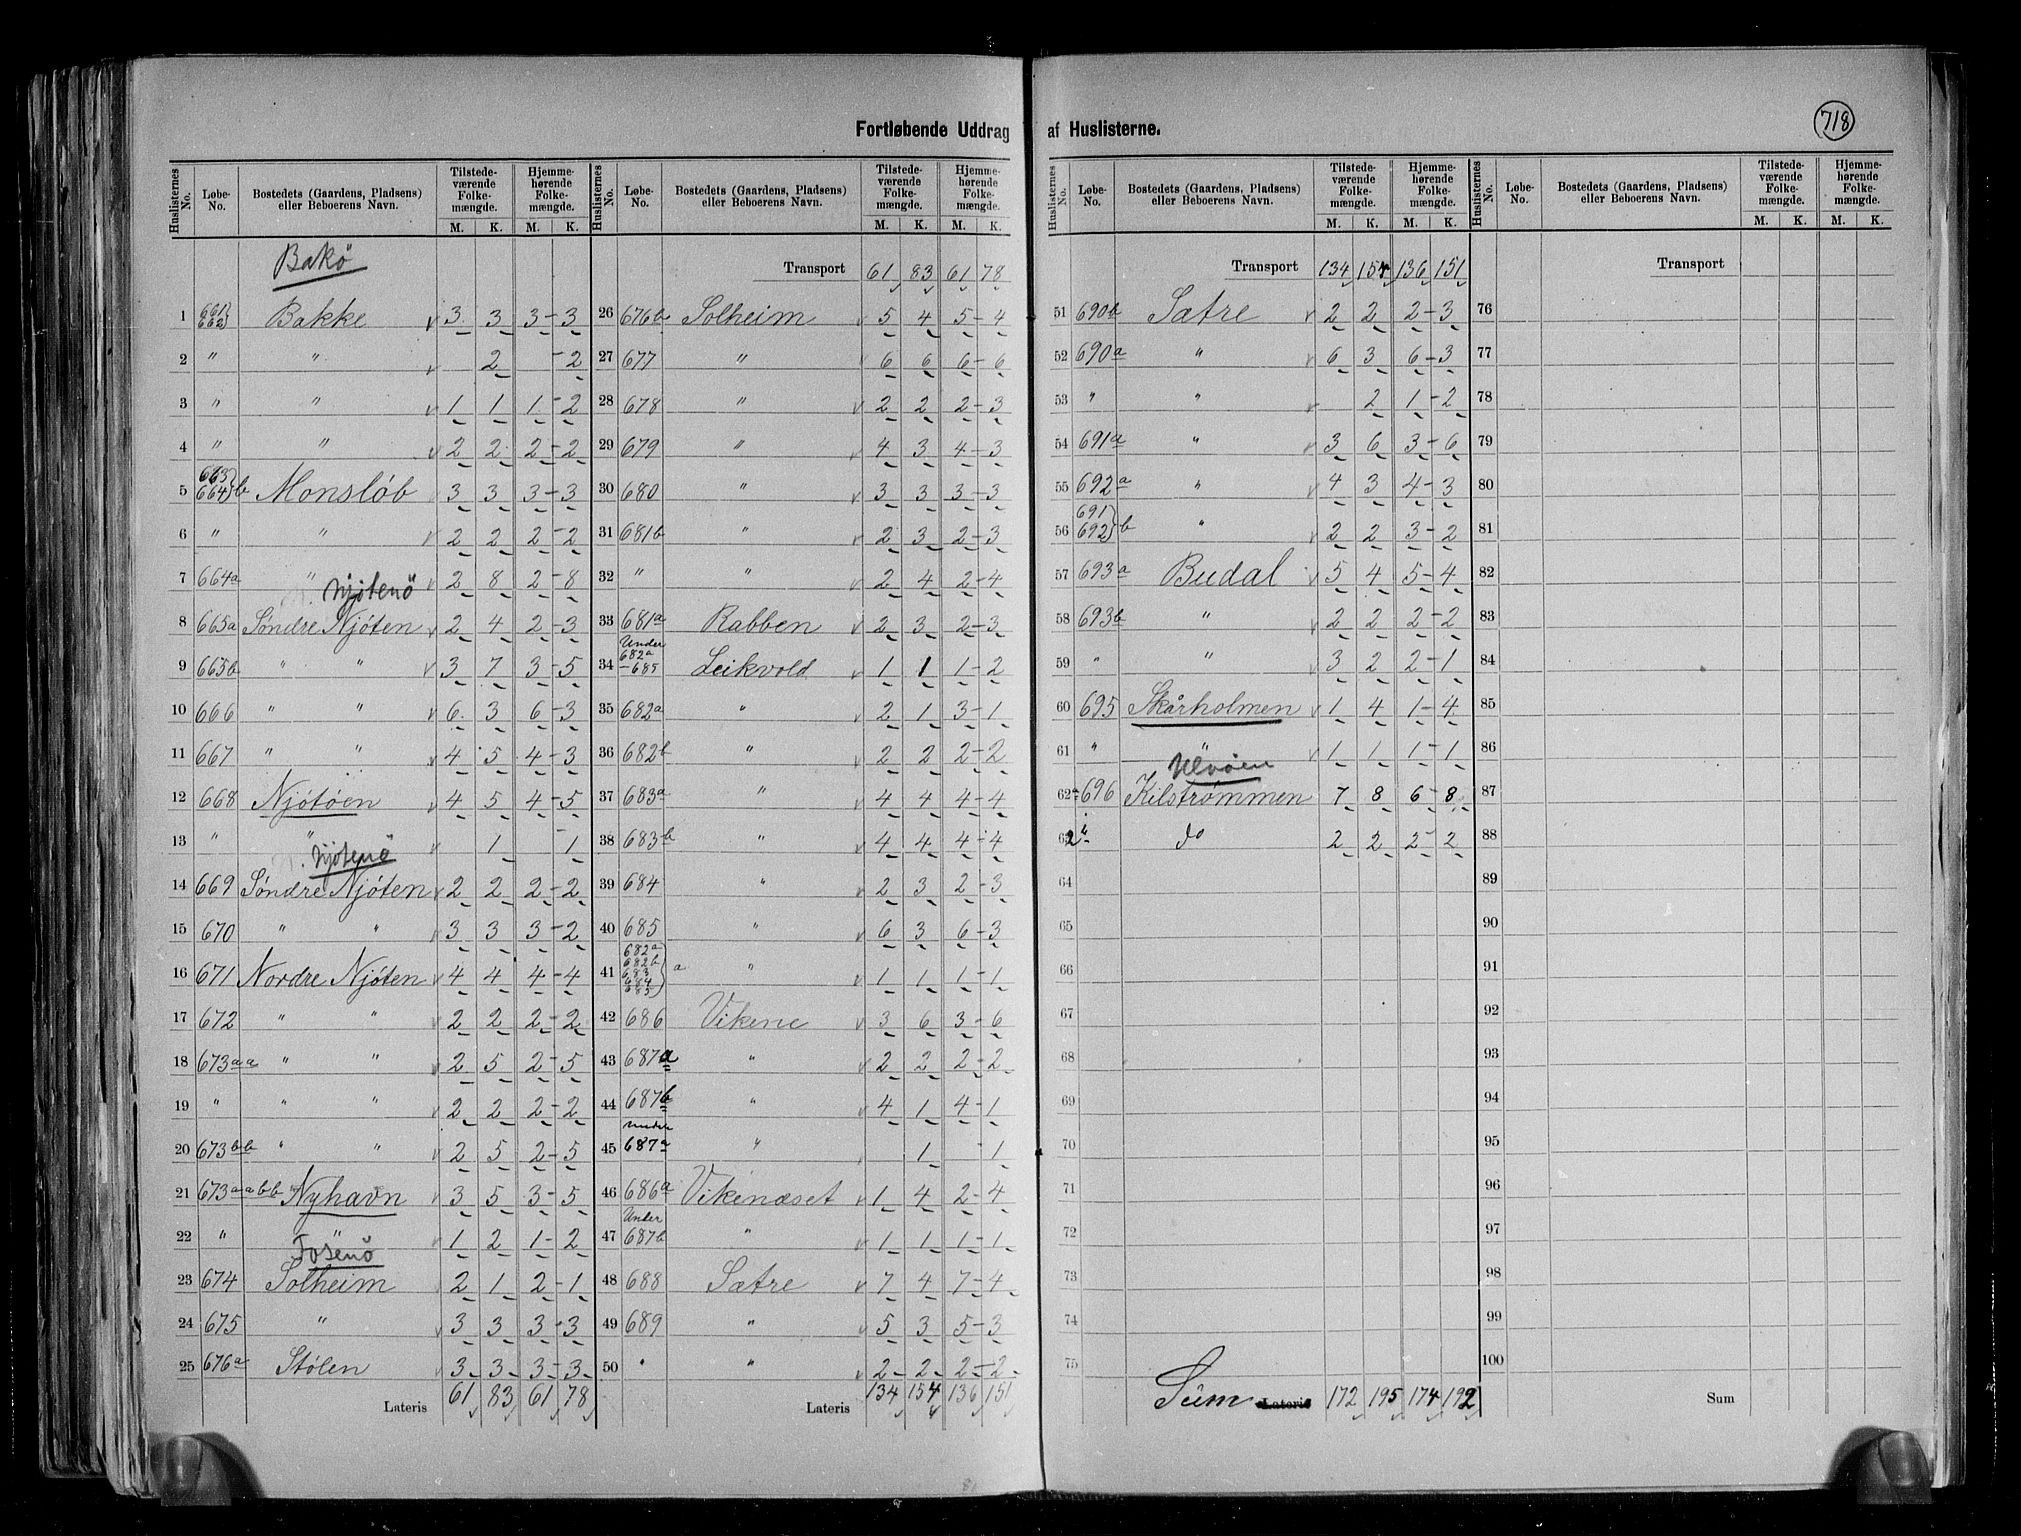 718
Fortløbende Uddrag af Huslisterne.
Huslisternes No. Løbe-No. Bostedets (Gaardens, Pladsens) eller Beboerens Navn. Tilstedeværende Folkemængde. M. K. Hjemmehørende Folkemængde. M. K.
Bakö
1 661 662 Bakke 3 3 3-3
2 " " 2 -2
3 " " 1 1 1-2
4 " " 2 2 2-2
5 663 664 b Monsløb 3 3 3-3
6 " " 2 2 2-2
7 664a " 2 8 2-8
Njötenö
8 665a Søndre Njöten 2 4 2-3
9 665b " " 3 7 3-5
10 666 " " 6 3 6-3
11 667 " " 4 5 4-3
12 668 Njötöen 4 5 4-5
13 " " 1 -1
Njötenö
14 669 Søndre Njöten 2 2 2-2
15 670 " " 3 3 3-2
16 671 Nordre Njöten 4 4 4-4
17 672 " " 2 2 2-2
18 673aa " " 2 5 2-5
19 " " " 2 2 2-2
20 673bb " " 2 5 2-5
21 673aabb Nyhavn 3 5 3-5
22 " " 1 2 1-2
Fosenö
23 674 Solheim 2 1 2-1
24 675 " 3 3 3-3
25 676a Stølen 3 3 3-3
Lateris 61 83 61 78
Huslisternes No. Løbe-No. Bostedets (Gaardens, Pladsens) eller Beboerens Navn. Tilstedeværende Folkemængde. M. K. Hjemmehørende Folkemængde. M. K.
Transport 61 83 61 78
26 676b Solheim 5 4 5-4
27 677 " 6 6 6-6
28 678 " 2 2 2-3
29 679 " 4 3 4-3
30 680 " 3 3 3-3
31 681b " 2 3 2-3
32 " " 2 4 2-4
33 681a Rabben 2 3 2-3
34 Under 682a -685 Leikvold 1 1 1-2
35 682a " 2 1 3-1
36 682b " 2 2 2-2
37 683a " 4 4 4-4
38 683b " 4 4 4-4
39 684 " 2 3 2-3
40 685 " 6 3 6-3
41 682a 682b 683 684 685 a " 1 1 1-1
42 686 Vikene 3 6 3-6
43 687a " 2 2 2-2
44 687b " 4 1 4-1
45 under 687a " 1 -1
46 686a Vikenæset 1 4 2-4
47 Under 687b " 1 1 1-1
48 688 Sætre 7 4 7-4
49 689 " 5 3 5-3
50 " " 2 2 2-2
Lateris 134 154 136 151
Huslisternes No. Løbe-No. Bostedets (Gaardens, Pladsens) eller Beboerens Navn. Tilstedeværende Folkemængde. M. K. Hjemmehørende Folkemængde. M. K.
Transport 134 154 136 151
51 690b Sætre 2 2 2-3
52 690a " 6 3 6-3
53 " " 2 1-2
54 691a " 3 6 3-6
55 692a " 4 3 4-3
56 691 692 b " 2 2 3-2
57 693a Budal 5 4 5-4
58 693b " 2 2 2-2
59 " " 3 2 2-1
60 695 Skårholmen 1 4 1-4
61 " " 1 1 1-1
Ulvöen
62 696 Kilstrømmen 7 8 6-8
63 do 2 2 2-2
64
65
66
67
68
69
70
71
72
73
74
75
Sum Lateris 172 195 174 192
Huslisternes No. Løbe-No. Bostedets (Gaardens, Pladsens) eller Beboerens Navn. Tilstedeværende Folkemængde. M. K. Hjemmehørende Folkemængde. M. K.
Transport
76
77
78
79
80
81
82
83
84
85
86
87
88
89
90
91
92
93
94
95
96
97
98
99
100
Sum